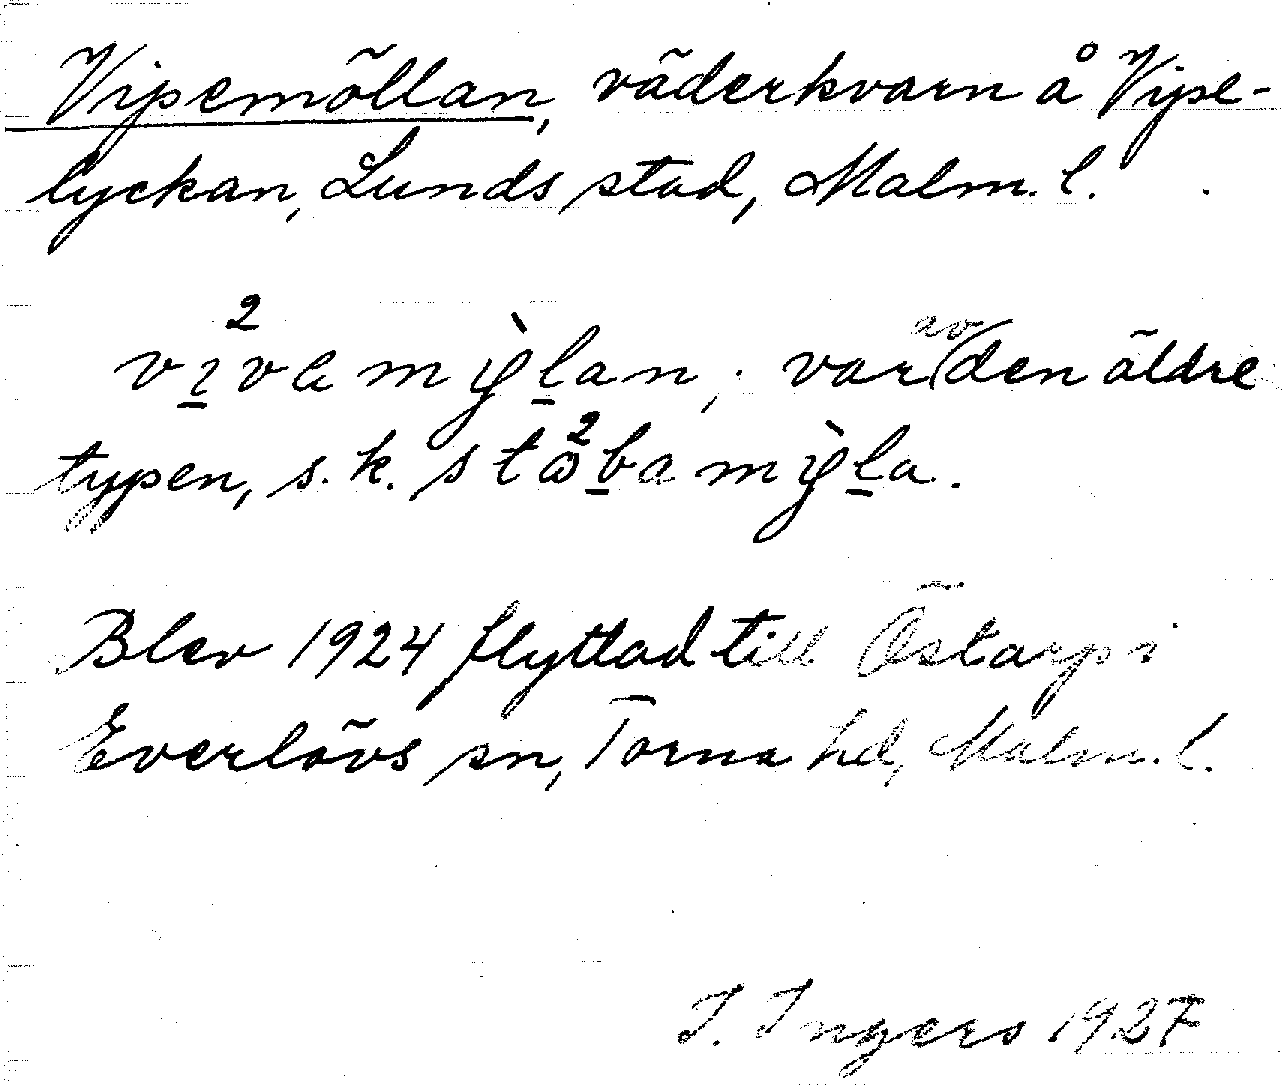 Vipemöllan, väderkvarn å Vipe-
lyckan, Lunds stad, Malm. l.
vi̱²vamỳḻan; var av den äldre
typen, s. k. stå²ḇamỳḻa.
Blev 1924 flyttad till Östarp i
Everlövs sn, Torna hd, Malm. l.
I. Ingers 1927